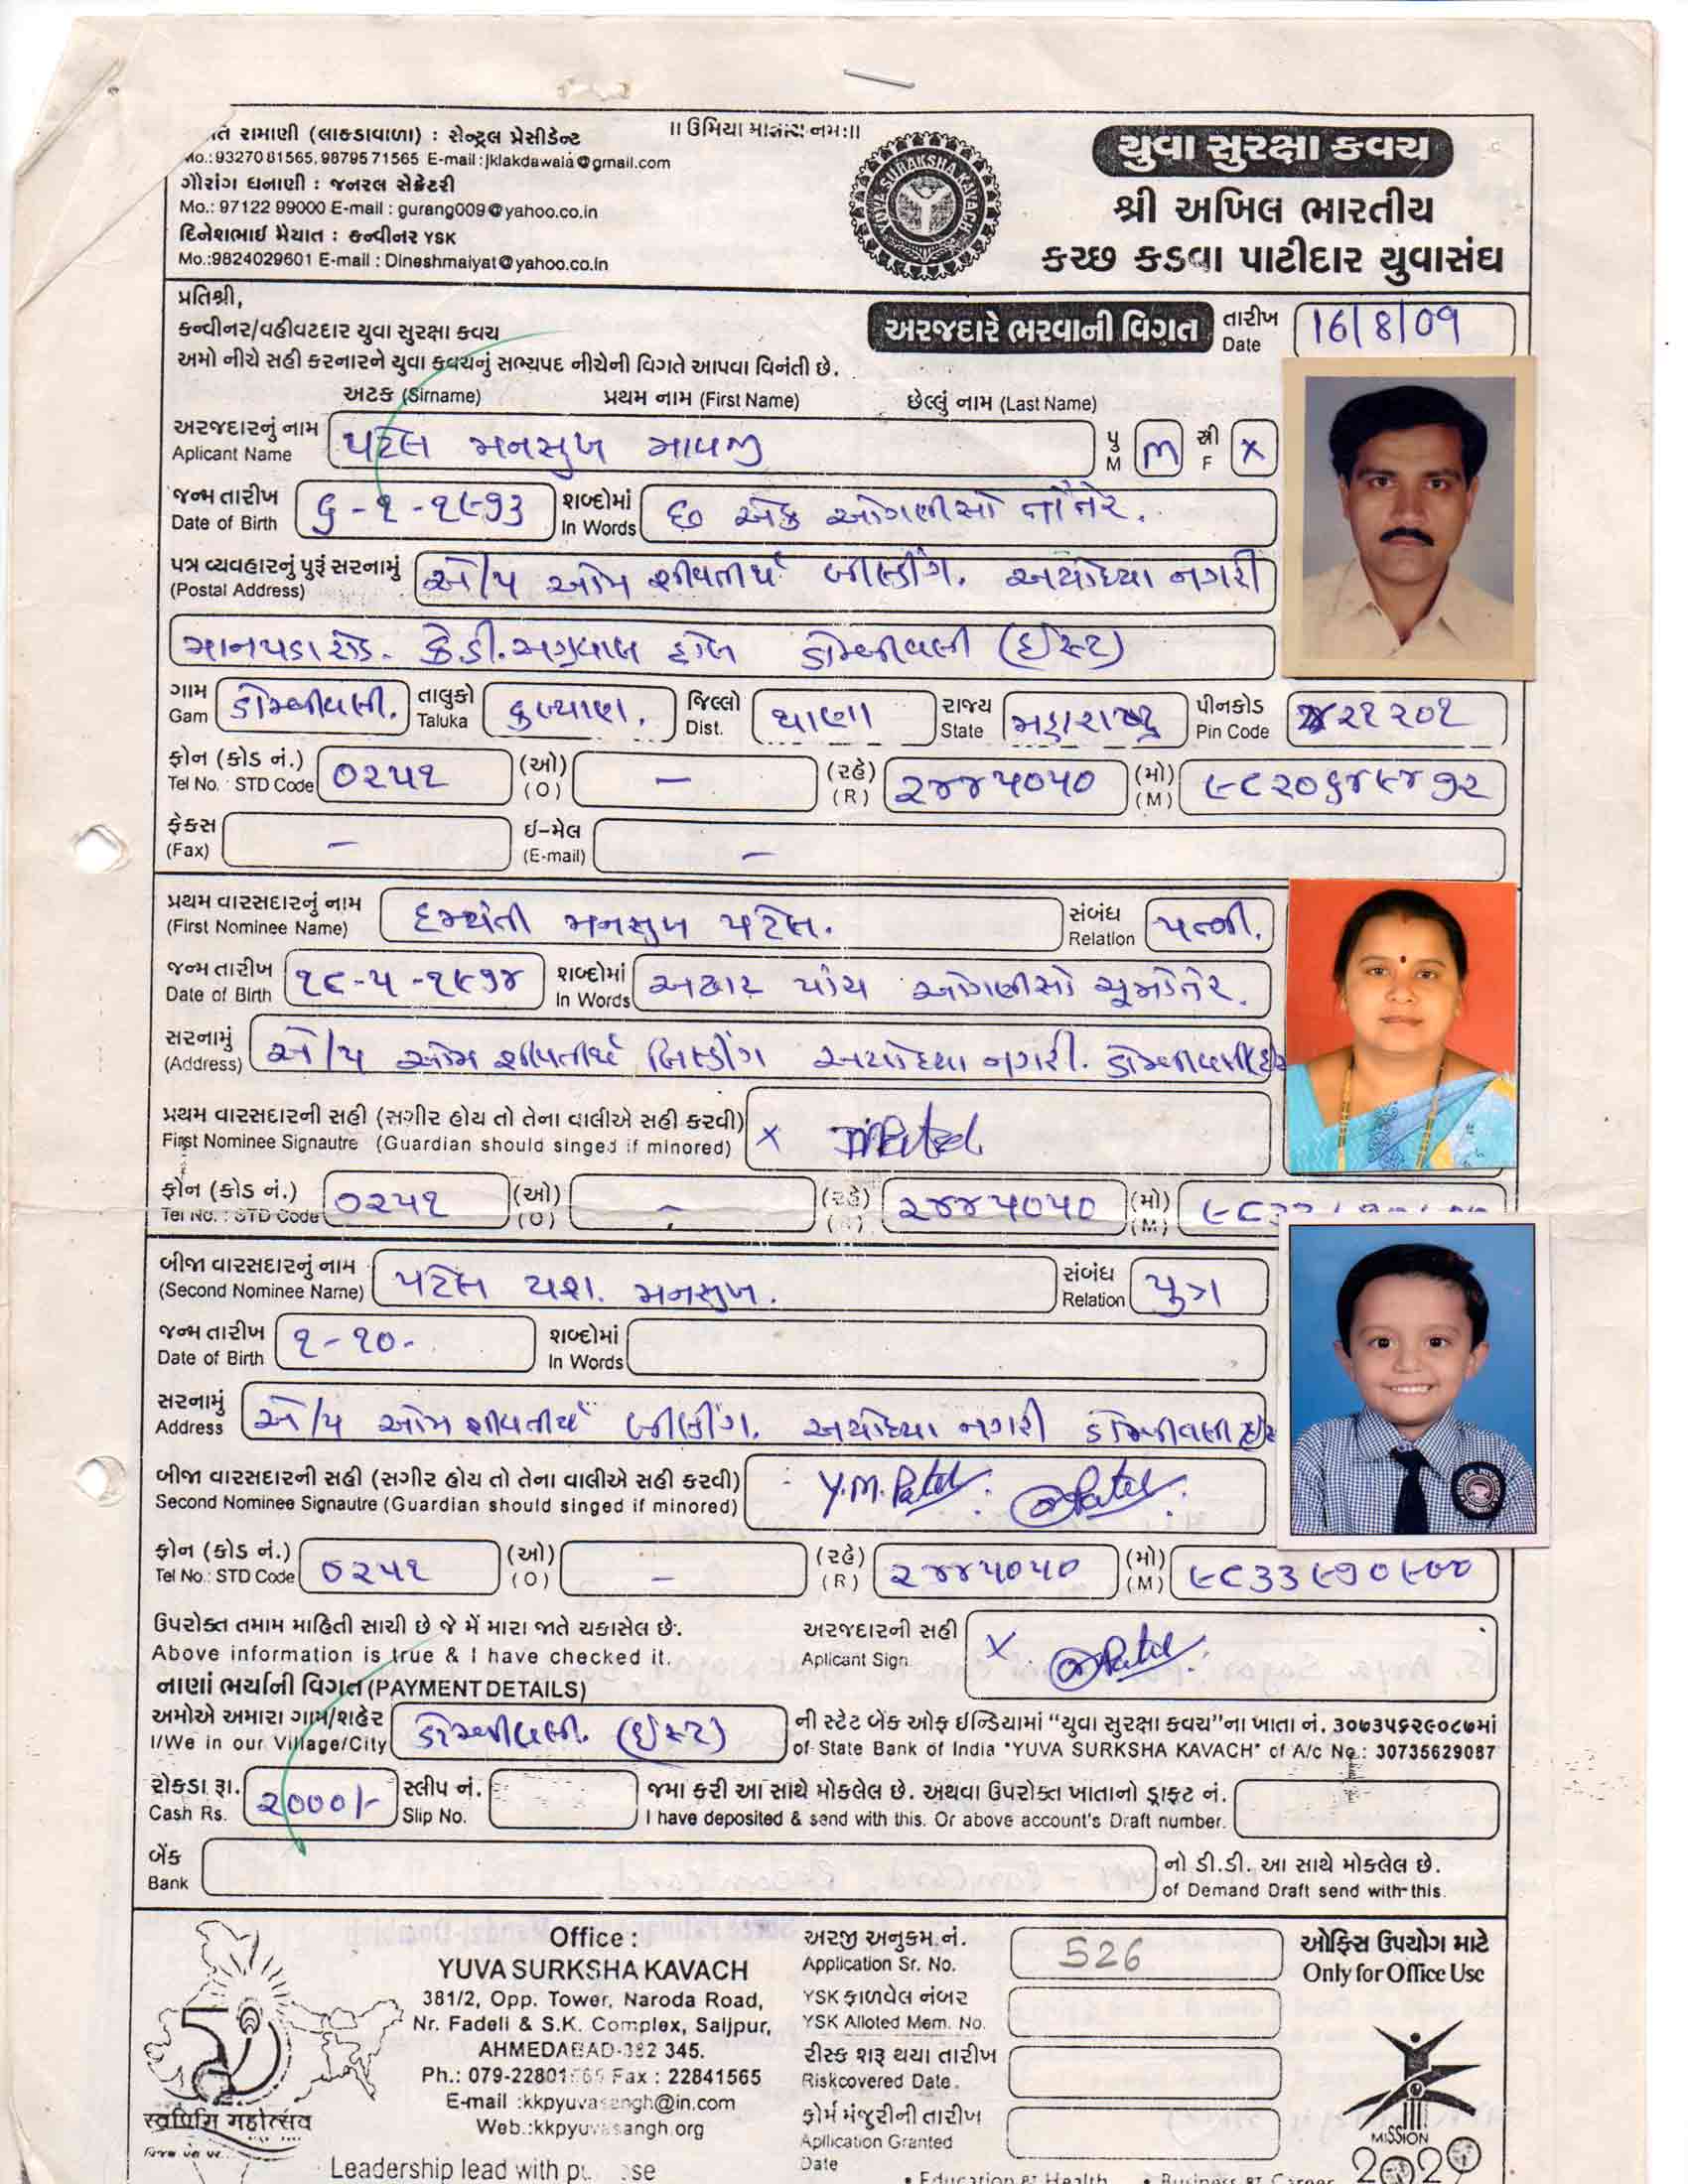 રામાણી (લાકડાવાળા) : સેન્ટ્રલ પ્રેસીડેન્ટ
Mo.:9327081565, 9879571565 E-mail :jklakdawala@gmail.com
ગૌરાંગ ધનાણી : જનરલ સેક્રેટરી
Mo.: 97122 99000 E-mail : gurang009@yahoo.co.in
દિનેશભાઈ મૈયાત : કન્વીનર YSK
Mo.:9824029601 E-mail : Dineshmaiyat@yahoo.co.in
॥ ઉમિયા માતાય નમ:॥
YUVA SURAKSHA KAVACH
યુવા સુરક્ષા કવચ
શ્રી અખિલ ભારતીય
કચ્છ કડવા પાટીદાર યુવાસંઘ
પ્રતિશ્રી,
કન્વીનર/વહીવટદાર યુવા સુરક્ષા કવચ
અરજદારે ભરવાની વિગત તારીખ Date 16/8/09
અમો નીચે સહી કરનારને યુવા કવચનું સભ્યપદ નીચેની વિગતે આપવા વિનંતી છે.
અટક (Sirname) પ્રથમ નામ (First Name) છેલ્લું નામ (Last Name)
અરજદારનું નામ Aplicant Name પટેલ મનસુખ માવજી પુ M m સ્ત્રી F x
જન્મ તારીખ Date of Birth ૬-૧-૧૯૭૩ શબ્દોમાં In Words છ એક ઓગણીસો તોંતેર.
પત્ર વ્યવહારનું પુરૂં સરનામું (Postal Address) એ/૫ ઓમ શીવતીર્થ બીલ્ડીંગ. અયોધ્યા નગરી
માનપડા રોડ. કે.ડી.અગ્રવાલ હોલ ડોમ્બીવલી (ઈસ્ટ)
ગામ Gam ડોમ્બીવલી. તાલુકો Taluka કલ્યાણ. જિલ્લો Dist. થાણા રાજ્ય State મહારાષ્ટ્ર પીનકોડ Pin Code ૪૨૧૨૦૧
ફોન (કોડ નં.) Tel No. : STD Code ૦૨૫૧ (ઓ) (O) – (રહે) (R) ૨૪૪૫૦૫૦ (મો) (M) ૯૮૨૦૬૪૯૪૭૨
ફેક્સ (Fax) – ઈ-મેલ (E-mail) –
પ્રથમ વારસદારનું નામ (First Nominee Name) દમયંતી મનસુખ પટેલ. સંબંધ Relation પત્ની.
જન્મ તારીખ Date of Birth ૧૮-૫-૧૯૭૪ શબ્દોમાં In Words અઢાર પાંચ ઓગણીસો ચૂમોતેર.
સરનામું (Address) એ/૫ ઓમ શીવતીર્થ બિલ્ડીંગ અયોધ્યા નગરી. ડોમ્બીવલી
પ્રથમ વારસદારની સહી (સગીર હોય તો તેના વાલીએ સહી કરવી)
First Nominee Signautre (Guardian should singed if minored) x
ફોન (કોડ નં.) Tel No. : STD Code ૦૨૫૧ (ઓ) (O) – (રહે) ૨૪૪૫૦૫૦ (મો) (M)
બીજા વારસદારનું નામ (Second Nominee Name) પટેલ યશ. મનસુખ. સંબંધ Relation પુત્ર
જન્મ તારીખ Date of Birth ૧-૧૦- શબ્દોમાં In Words
સરનામું Address એ/૫ ઓમ શીવતીર્થ બીલ્ડીંગ. અયોધ્યા નગરી ડોમ્બીવલી
બીજા વારસદારની સહી (સગીર હોય તો તેના વાલીએ સહી કરવી)
Second Nominee Signautre (Guardian should singed if minored) Y.M. Patel
ફોન (કોડ નં.) Tel No.: STD Code ૦૨૫૧ (ઓ) (O) – (રહે) (R) ૨૪૪૫૦૫૦ (મો) (M)
ઉપરોક્ત તમામ માહિતી સાચી છે જે મેં મારા જાતે ચકાસેલ છે.
Above information is true & I have checked it.
અરજદારની સહી Aplicant Sign. x
નાણાં ભર્યાની વિગત (PAYMENT DETAILS)
અમોએ અમારા ગામ/શહેર ડોમ્બીવલી. (ઈસ્ટ) ની સ્ટેટ બેંક ઓફ ઈન્ડિયામાં "યુવા સુરક્ષા કવચ"ના ખાતા નં. ૩૦૭૩૫૬૨૯૦૮૭માં
I/We in our Village/City of State Bank of India "YUVA SURKSHA KAVACH" of A/c No.: 30735629087
રોકડા રૂા. Cash Rs. ૨૦૦૦/- સ્લીપ નં. Slip No. જમા કરી આ સાથે મોકલેલ છે. અથવા ઉપરોક્ત ખાતાનો ડ્રાફ્ટ નં.
I have deposited & send with this. Or above account's Draft number.
બેંક Bank નો ડી.ડી. આ સાથે મોકલેલ છે.
of Demand Draft send with this.
स्वर्णिम महोत्सव
Office :
YUVA SURKSHA KAVACH
381/2, Opp. Tower, Naroda Road,
Nr. Fadeli & S.K. Complex, Saijpur,
AHMEDABAD-382 345.
Ph.: 079-22801565 Fax : 22841565
E-mail :kkpyuvasangh@in.com
Web.:kkpyuvasangh.org
Leadership lead with
અરજી અનુક્રમ નં. Application Sr. No. 526
YSK ફાળવેલ નંબર YSK Alloted Mem. No.
રીસ્ક શરૂ થયા તારીખ Riskcovered Date.
ફોર્મ મંજુરીની તારીખ Apllication Granted Date
ઓફિસ ઉપયોગ માટે
Only for Office Use
MISSION
2020
• Education & Health • Business & Career